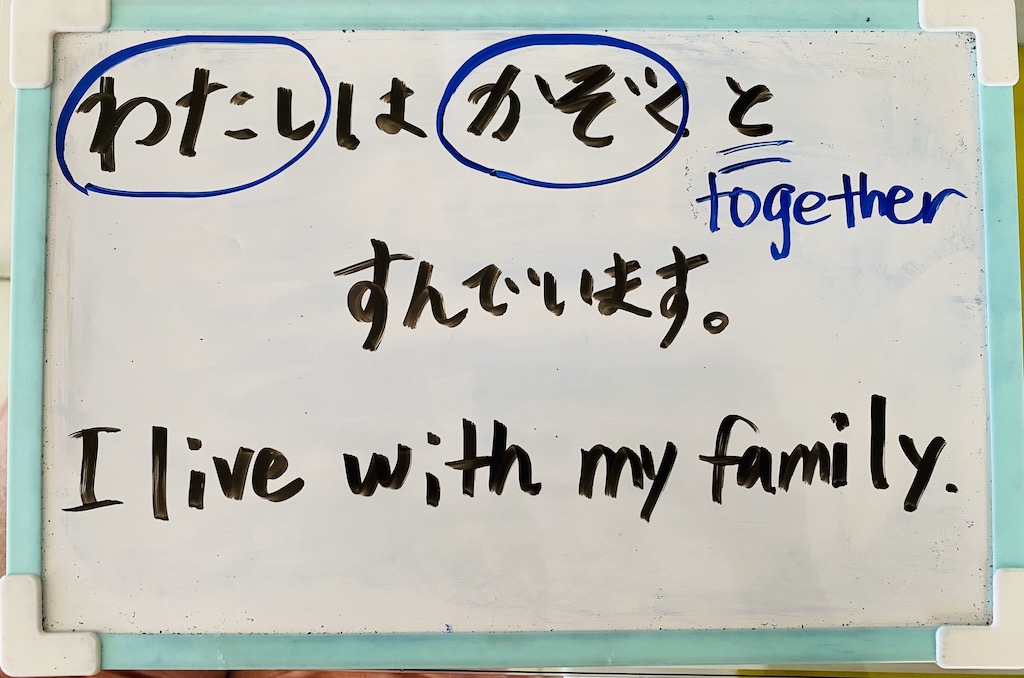 わたしは かぞく と
together
すんでいます。
I live with my family.